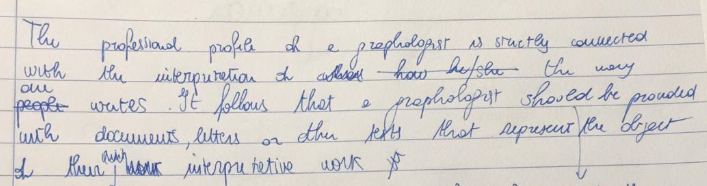 The professional profile of a graphologist is strictly connected
with the interpretation of how he/she the way
one
people writes. It follows that a graphologist should be provided
with documents, letters or other texts that represent the object
of their interpretative work